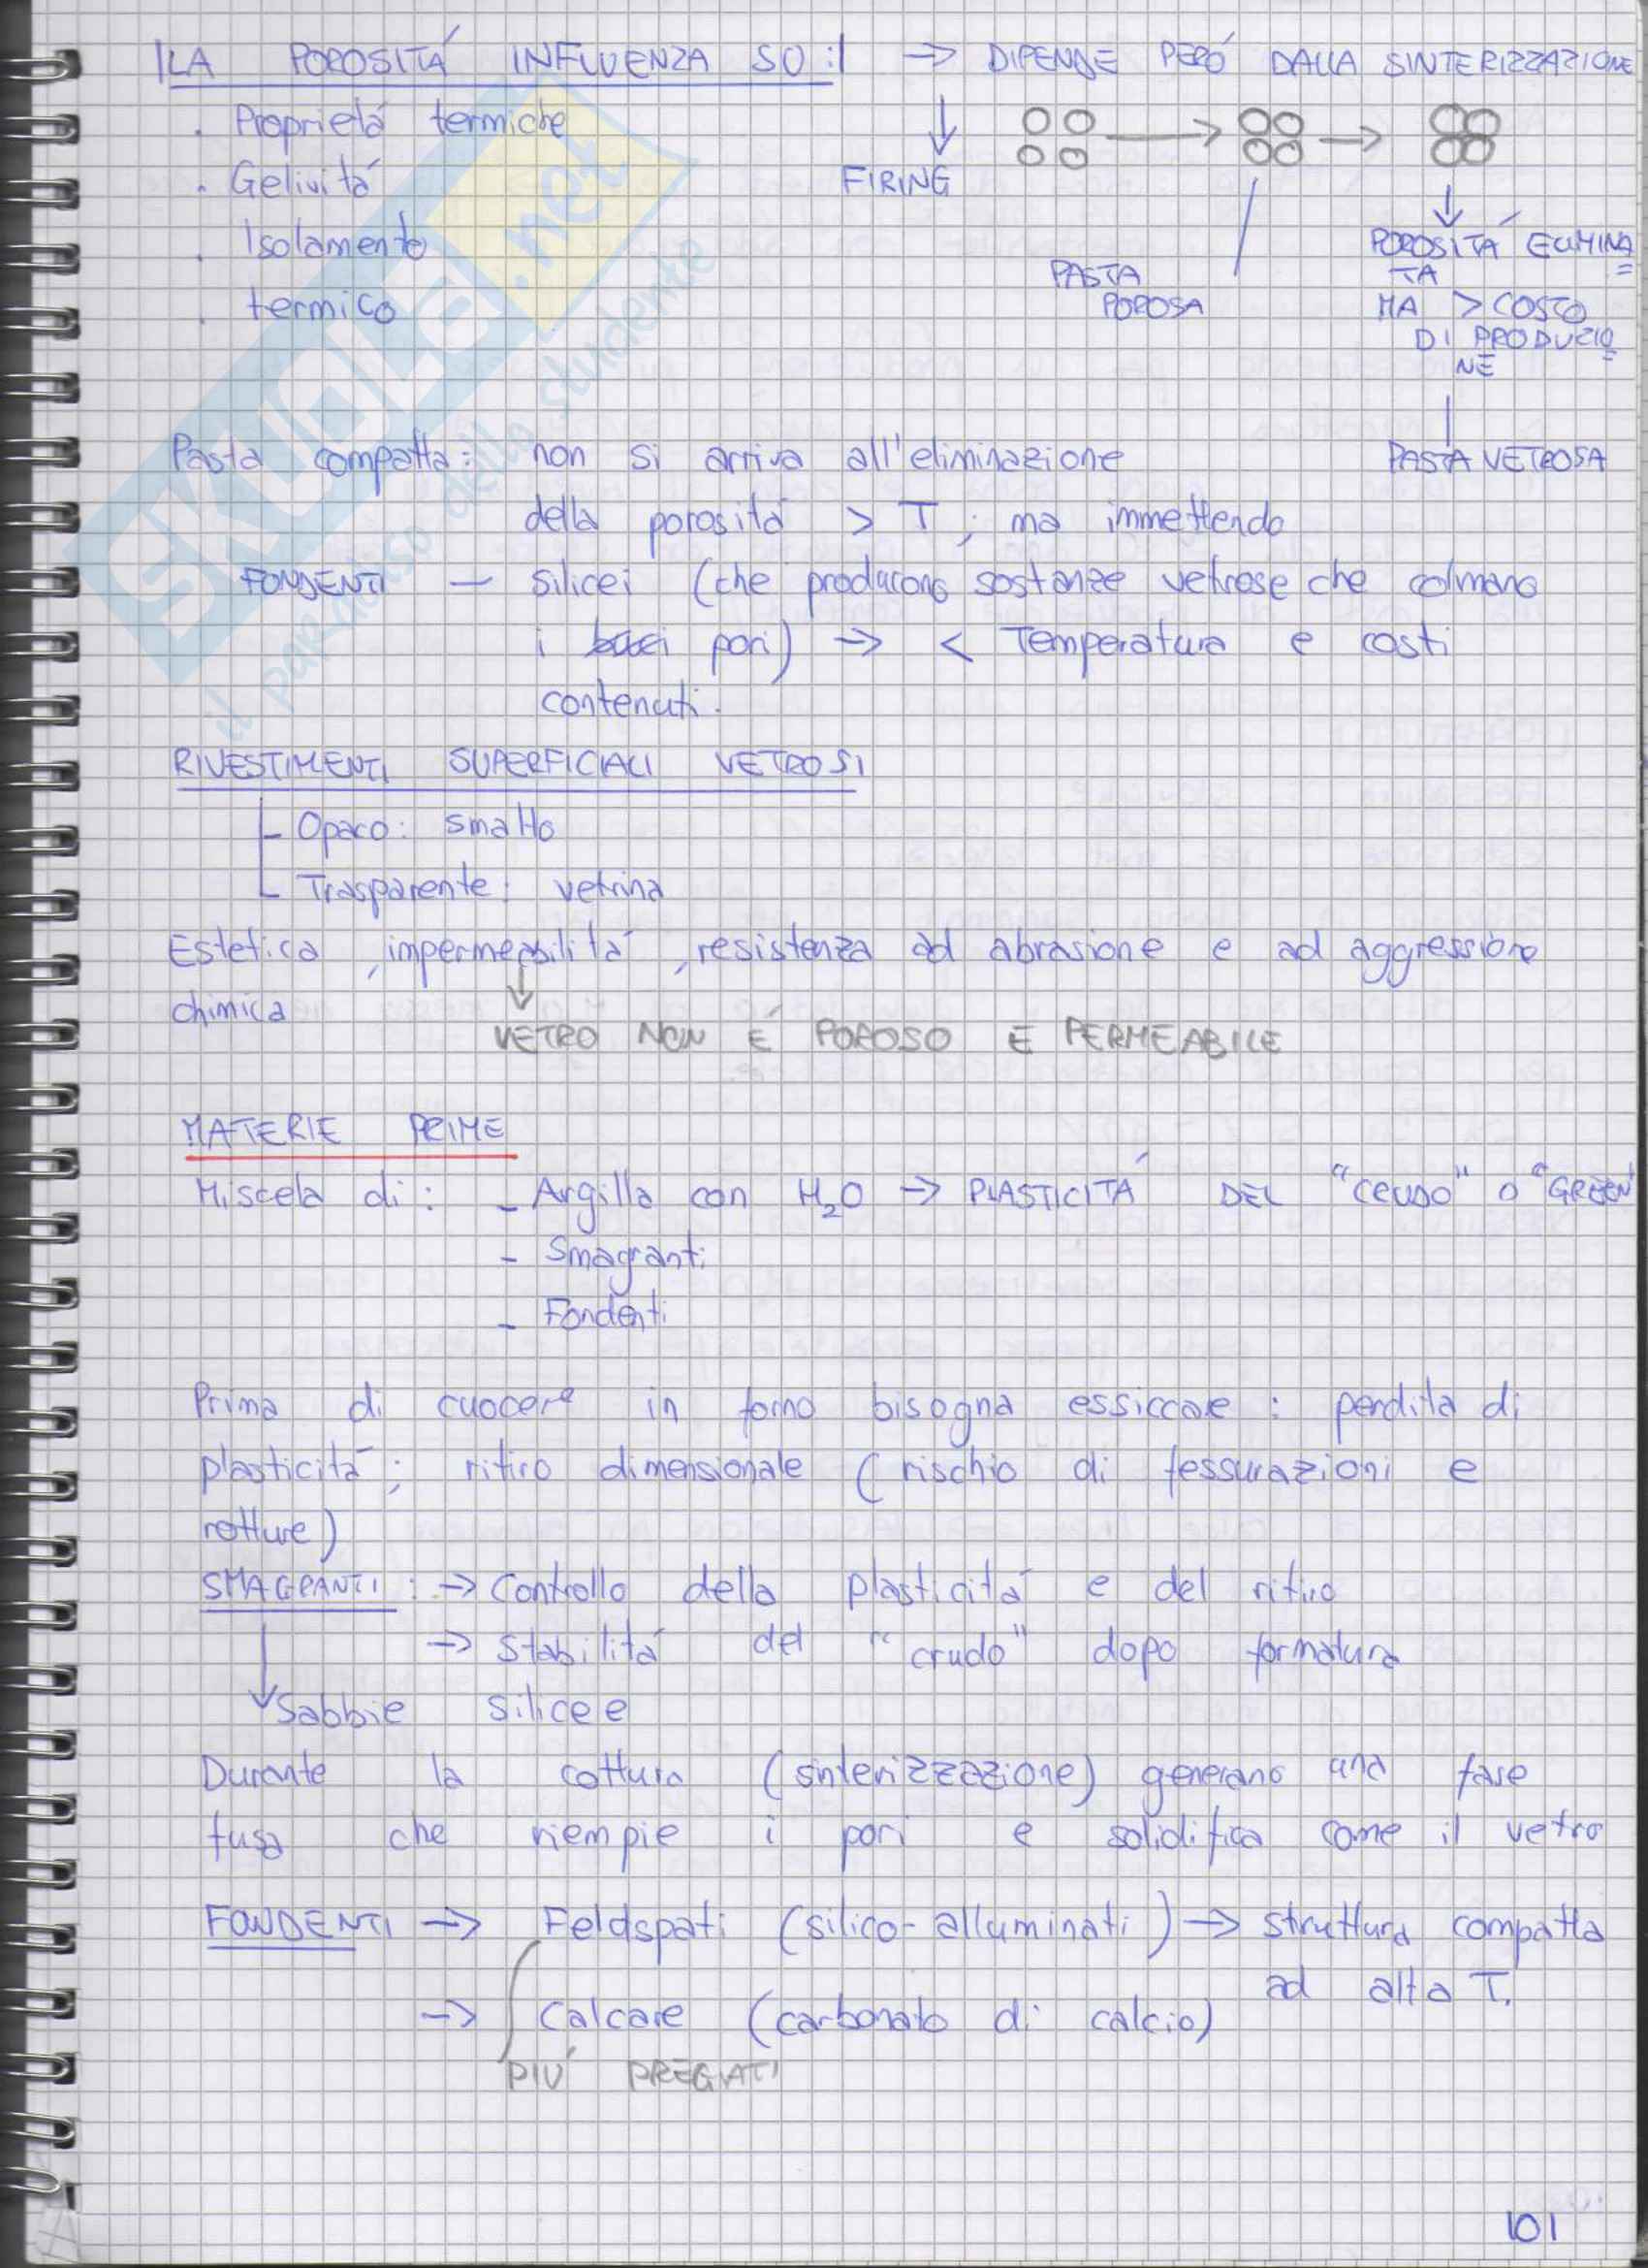 LA POROSITÁ INFLUENZA SU: → DIPENDE PERÓ DALLA SINTERIZZAZIONE
. Proprietá termiche
↓ FIRING
. Gelivitá
. Isolamento
. termico
PASTA
POROSA
POROSITÁ ELIMINA
TA
MA > COSTO
DI PRODUZIO
NE
PASTA VETROSA
Pasta compatta: non si arriva all'eliminazione
della porositá > T ; ma immettendo
FONDENTI — silicei (che producono sostanze vetrose che colmano
i pori) → < Temperatura e costi
contenuti.
RIVESTIMENTI SUPERFICIALI VETROSI
- Opaco: smalto
- Trasparente: vetrina
Estetica, impermeabilitá, resistenza ad abrasione e ad aggressione
chimica
↓
VETRO NON É POROSO E PERMEABILE
MATERIE PRIME
Miscela di: - Argilla con H₂O → PLASTICITÁ DEL "CRUDO" O "GREEN"
- Smagranti
- Fondenti
Prima di cuocere in forno bisogna essiccare: perdita di
plasticitá; ritiro dimensionale (rischio di fessurazioni e
rotture)
SMAGRANTI: → Controllo della plasticitá e del ritiro
→ Stabilitá del "crudo" dopo formatura
↓ Sabbie silicee
Durante la cottura (sinterizzazione) generano una fase
fusa che riempie i pori e solidifica come il vetro
FONDENTI → Feldspati (silico-alluminati) → struttura compatta
ad alta T.
→ Calcare (carbonato di calcio)
PIÚ PREGIATI
101
SKUOLA.net
il paradiso dello studente